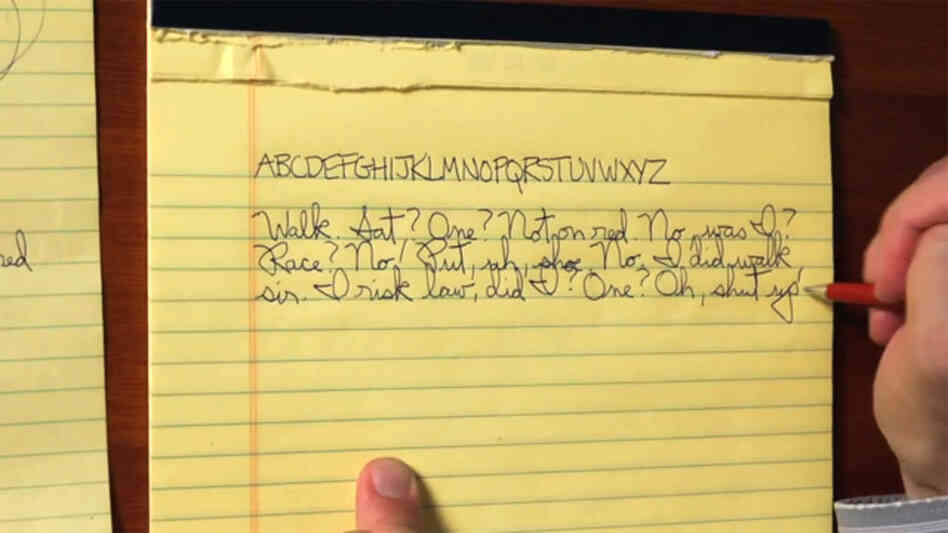 red
ABCDEFGHIJKLMNOPQRSTUVWXYZ
Walk. Sat? One? Not on red. No, was I?
Race? No! Put, uh, shoe. No, I did walk,
sir. I risk law, did I? One? Oh, shut up!